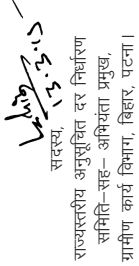 १३.३.१५
सदस्य,
राज्यस्तरीय अनुसूचित दर निर्धारण
समिति–सह– अभियंता प्रमुख,
ग्रामीण कार्य विभाग, बिहार, पटना।